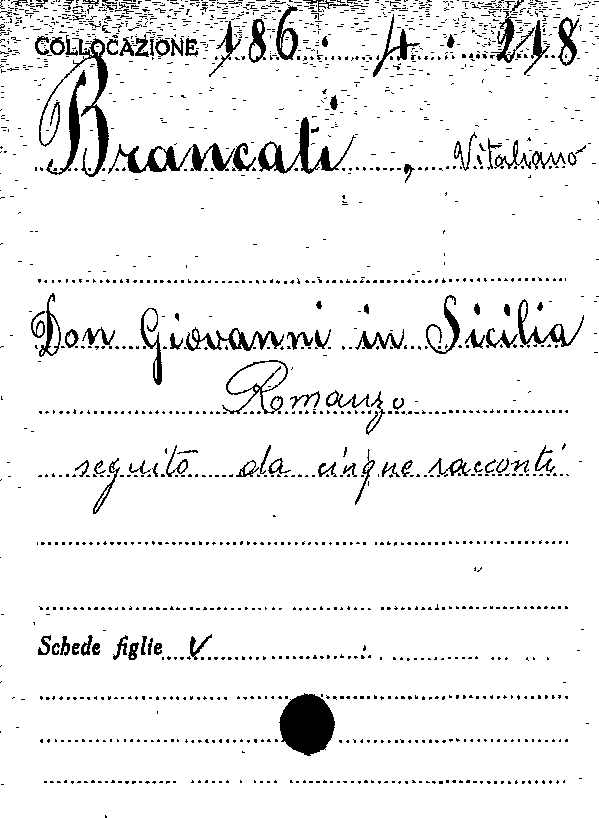 COLLOCAZIONE 186.4.218
Brancati, Vitaliano
Don Giovanni in Sicilia
Romanzo
seguito da cinque racconti
Schede figlie V